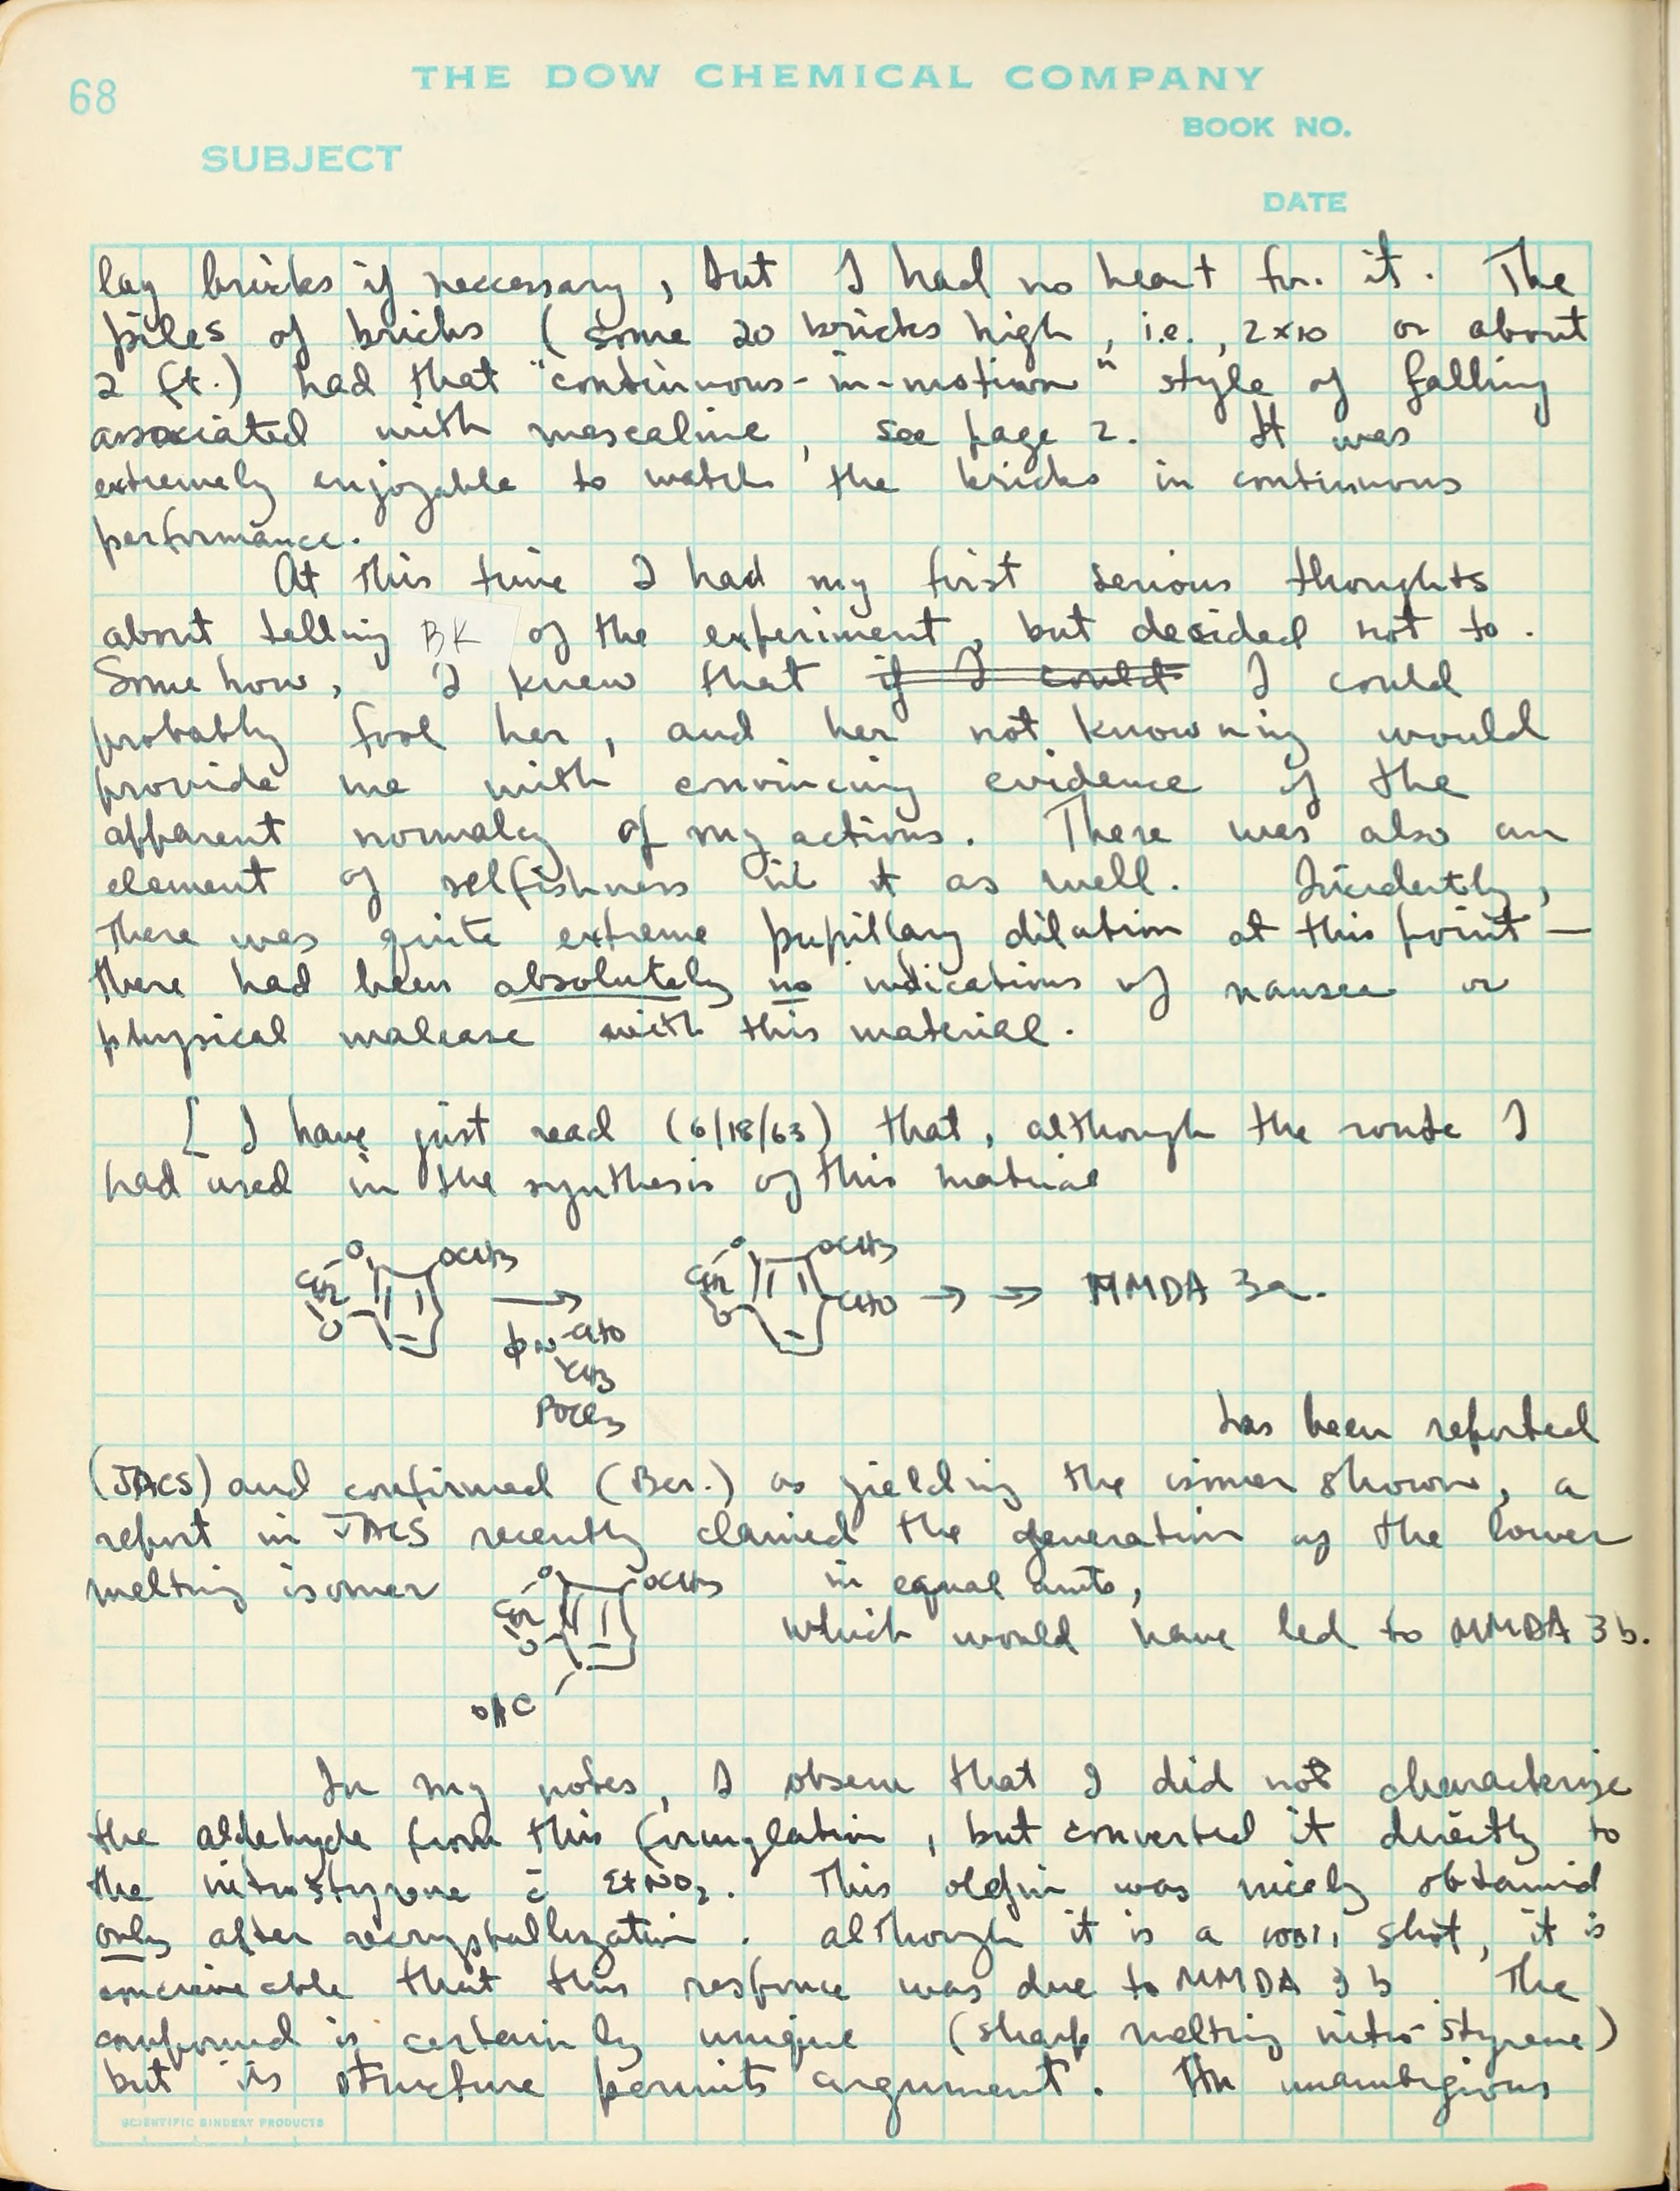 68
THE DOW CHEMICAL COMPANY
BOOK NO.
SUBJECT
DATE
lay bricks if neccessary, but I had no heart for it. The
piles of bricks (some 20 bricks high, i.e., 2x10 or about
2 ft.) had that "continuous-in-motion" style of falling
associated with mescaline, see page 2. It was
extremely enjoyable to watch the bricks in continuous
performance.
At this time I had my first serious thoughts
about telling BK of the experiment, but decided not to.
Some how, I knew that if I could I could
probably fool her, and her not knowing would
provide me with convincing evidence of the
apparent normalcy of my actions. There was also an
element of selfishness in it as well. Incidently,
there was quite extreme pupillary dilation at this point —
there had been absolutely no indications of nausea or
physical malease with this material.
[ I have just read (6/18/63) that, although the route I
had used in the synthesis of this material
O OCH3 O OCH3
CH2 → CH2 CHO → → MMDA 3a.
O O
ϕN-CHO
CH3
POCl3
has been reported
(JACS) and confirmed (Ber.) as yielding the isomer shown, a
report in JACS recently claimed the generation of the lower
melting isomer O OCH3 in equal amts,
CH2
O which would have led to MMDA 3b.
OHC
In my notes, I observe that I did not characterize
the aldehyde from this formylation, but converted it directly to
the nitrostyrene c̄ EtNO2. This olefin was nicely obtained
only after recrystallization. although it is a 100:1 shot, it is
conceiveable that this response was due to MMDA 3b. The
compound is certainly unique (sharp melting nitro-styrene)
but its structure permits argument. An unambigious
SCIENTIFIC BINDERY PRODUCTS